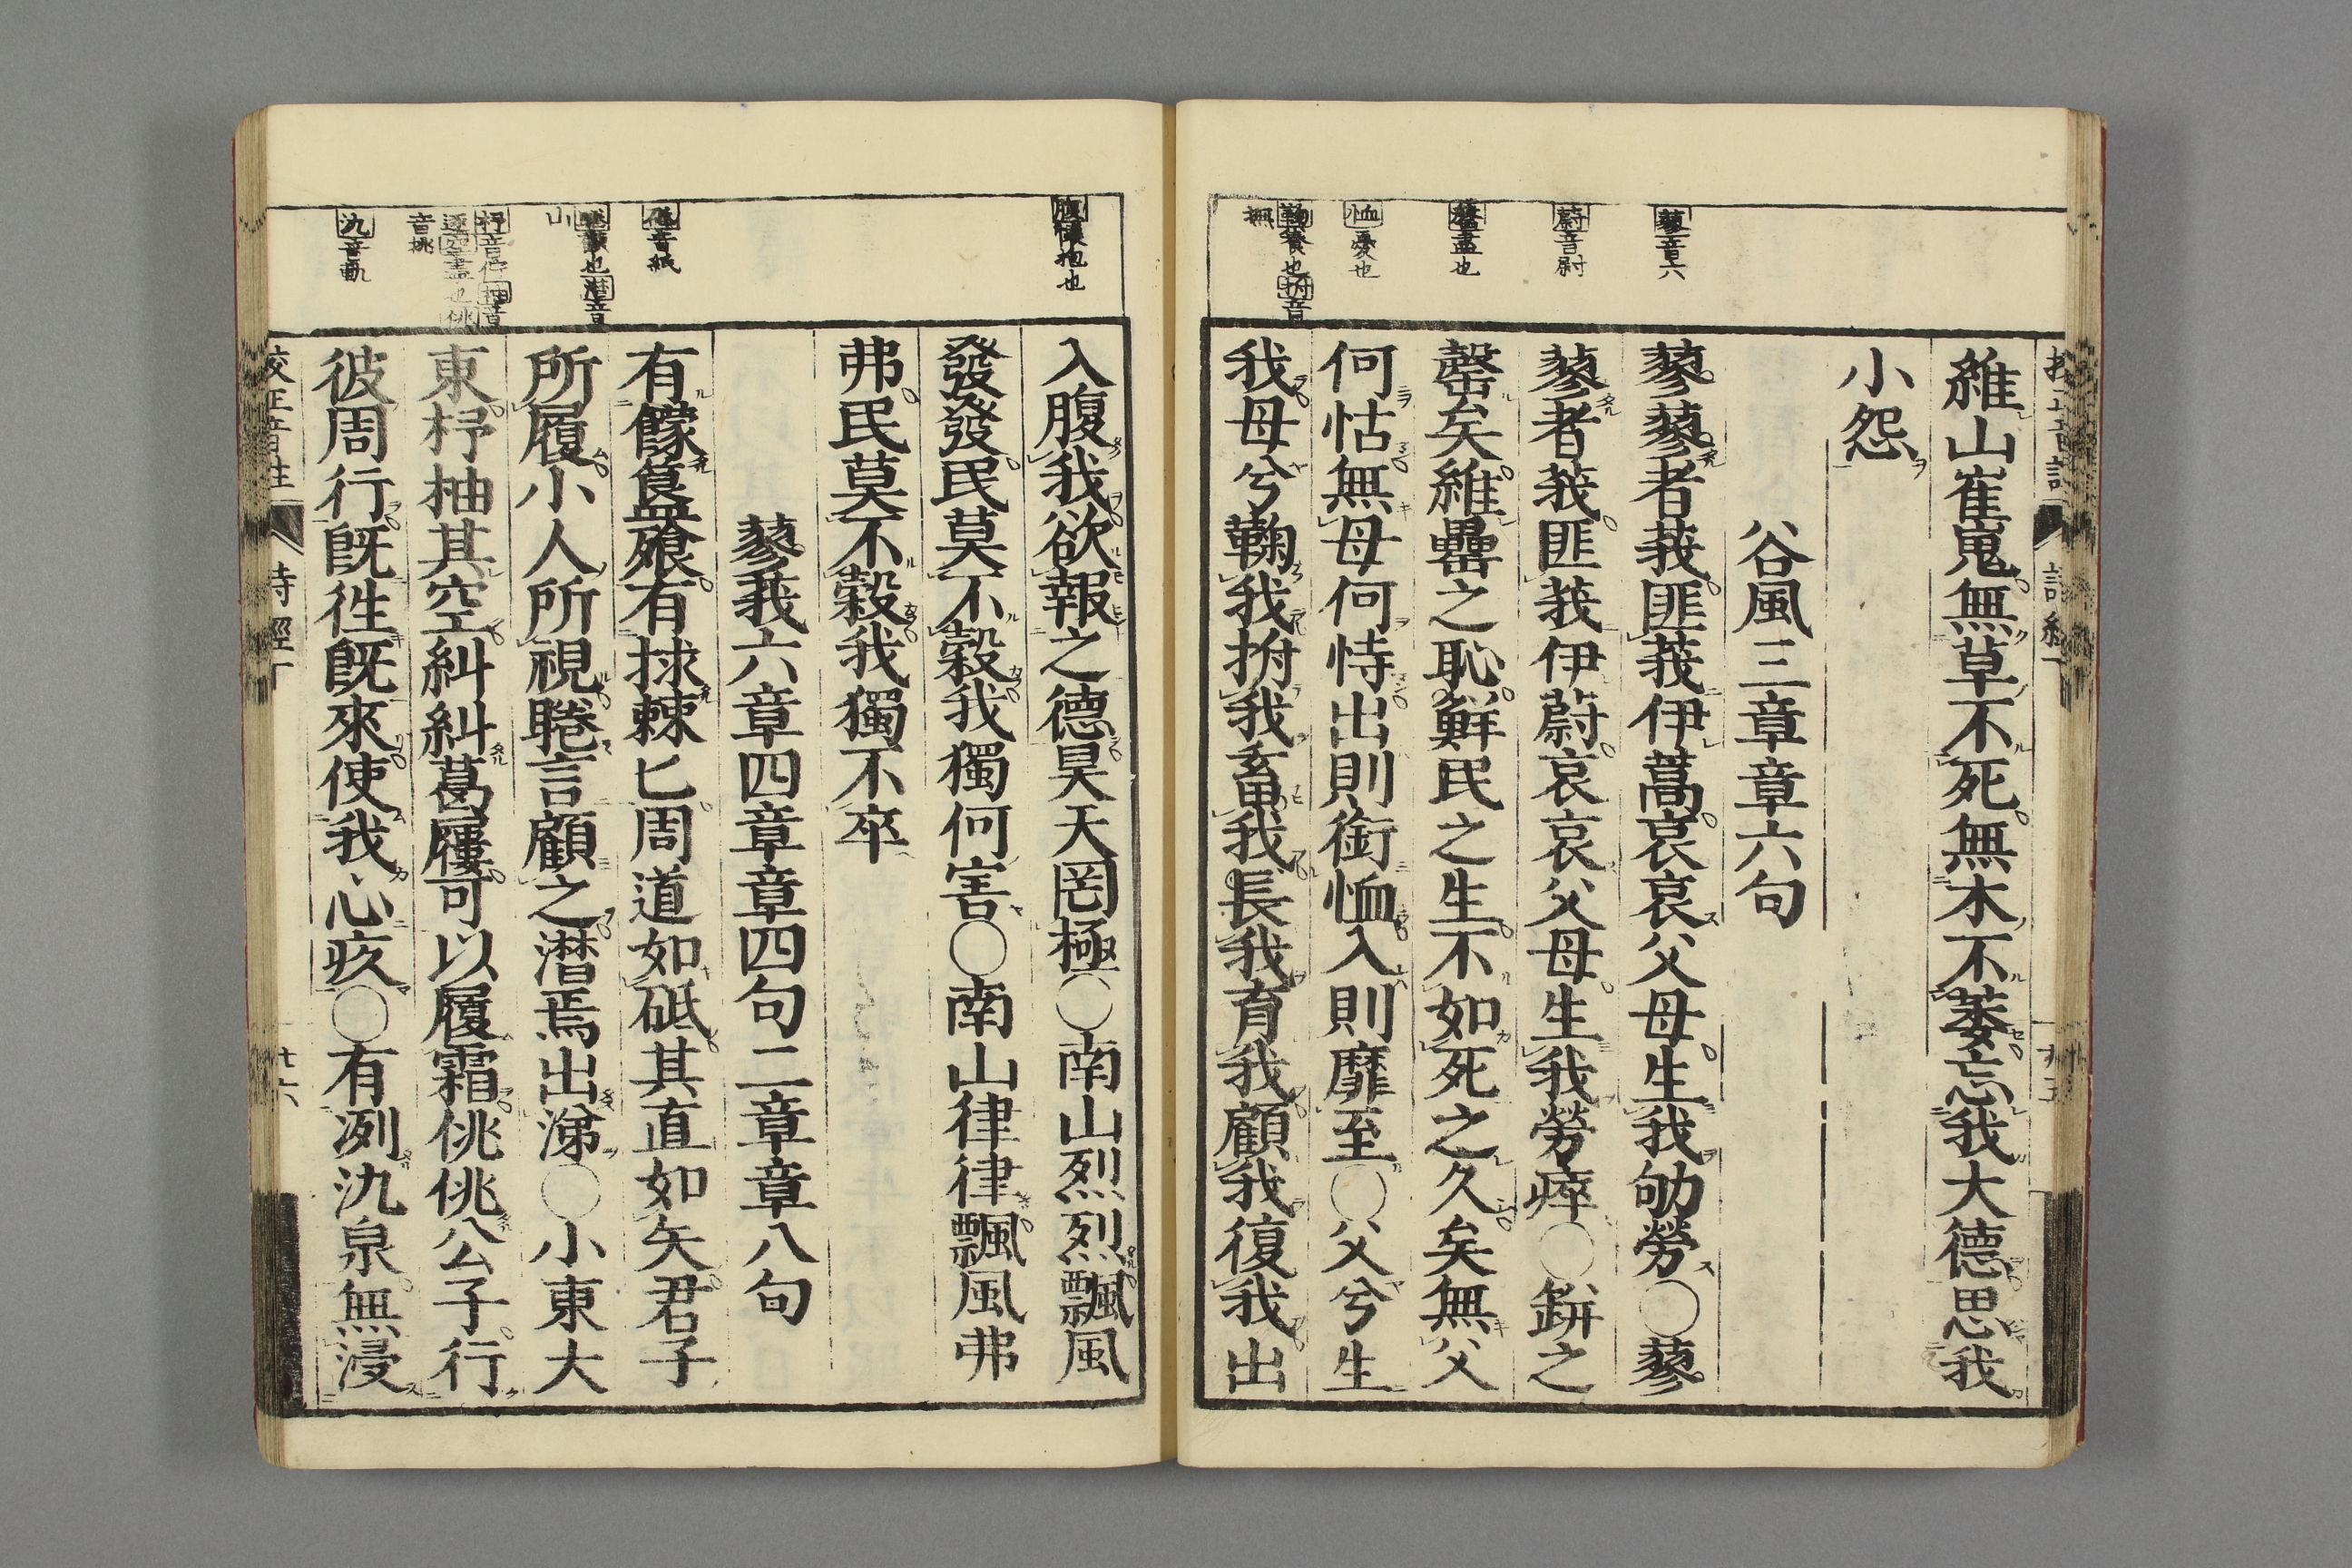 維山崔嵬無草不死無木不萎忘我大德思我
小怨
谷風三章章六句
蓼蓼者莪匪莪伊蒿哀哀父母生我劬勞○蓼
蓼者莪匪莪伊蔚哀哀父母生我勞瘁○缾之
罄矣維罍之恥鮮民之生不如死之久矣無父
何怙無母何恃出則銜恤入則靡至○父兮生
我母兮鞠我拊我畜我長我育我顧我復我出
蓼音六
蔚音尉
罄盡也
恤憂也
鞠養也拊音
撫
入腹我欲報之德昊天罔極○南山烈烈飄風
發發民莫不穀我獨何害○南山律律飄風弗
弗民莫不穀我獨不卒
蓼莪六章四章章四句二章章八句
有饛簋飧有捄棘匕周道如砥其直如矢君子
所履小人所視睠言顧之潜焉出涕○小東大
東杼柚其空糾糾葛屨可以履霜佻佻公子行
彼周行既徃既來使我心疚○有冽氿泉無浸
腹懷抱也
砥音紙
也潜音
山
杼音佇柚音
逐空盡也佻
音挑
氿音軌